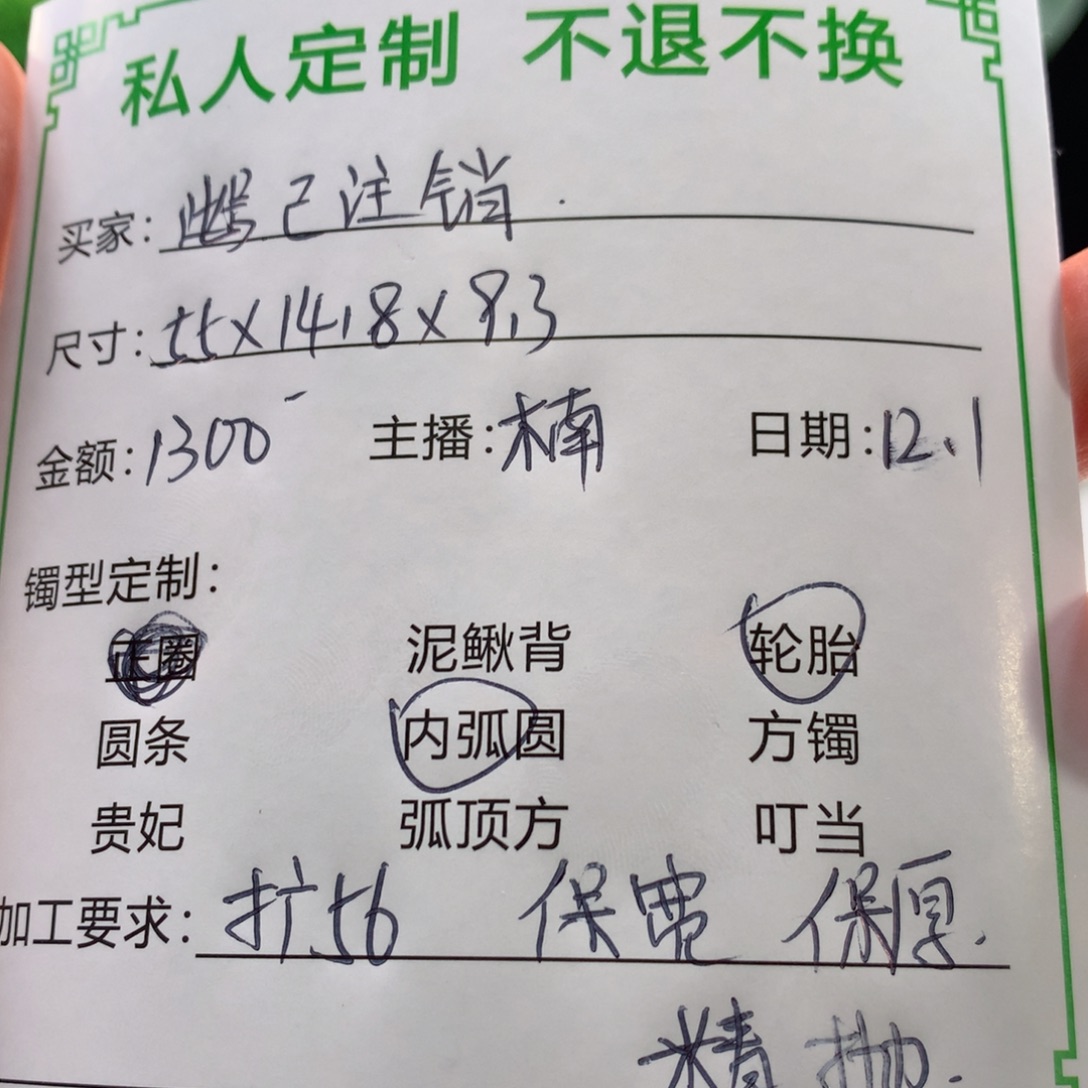 私人定制 不退不换
买家: 已注销.
尺寸: 55×14.8×9.3
金额: 1300- 主播: 楠 日期: 12.1
镯型定制:
正圈 泥鳅背 轮胎
圆条 内弧圆 方镯
贵妃 弧顶方 叮当
加工要求: 扩56 保宽 保厚.
精抛.